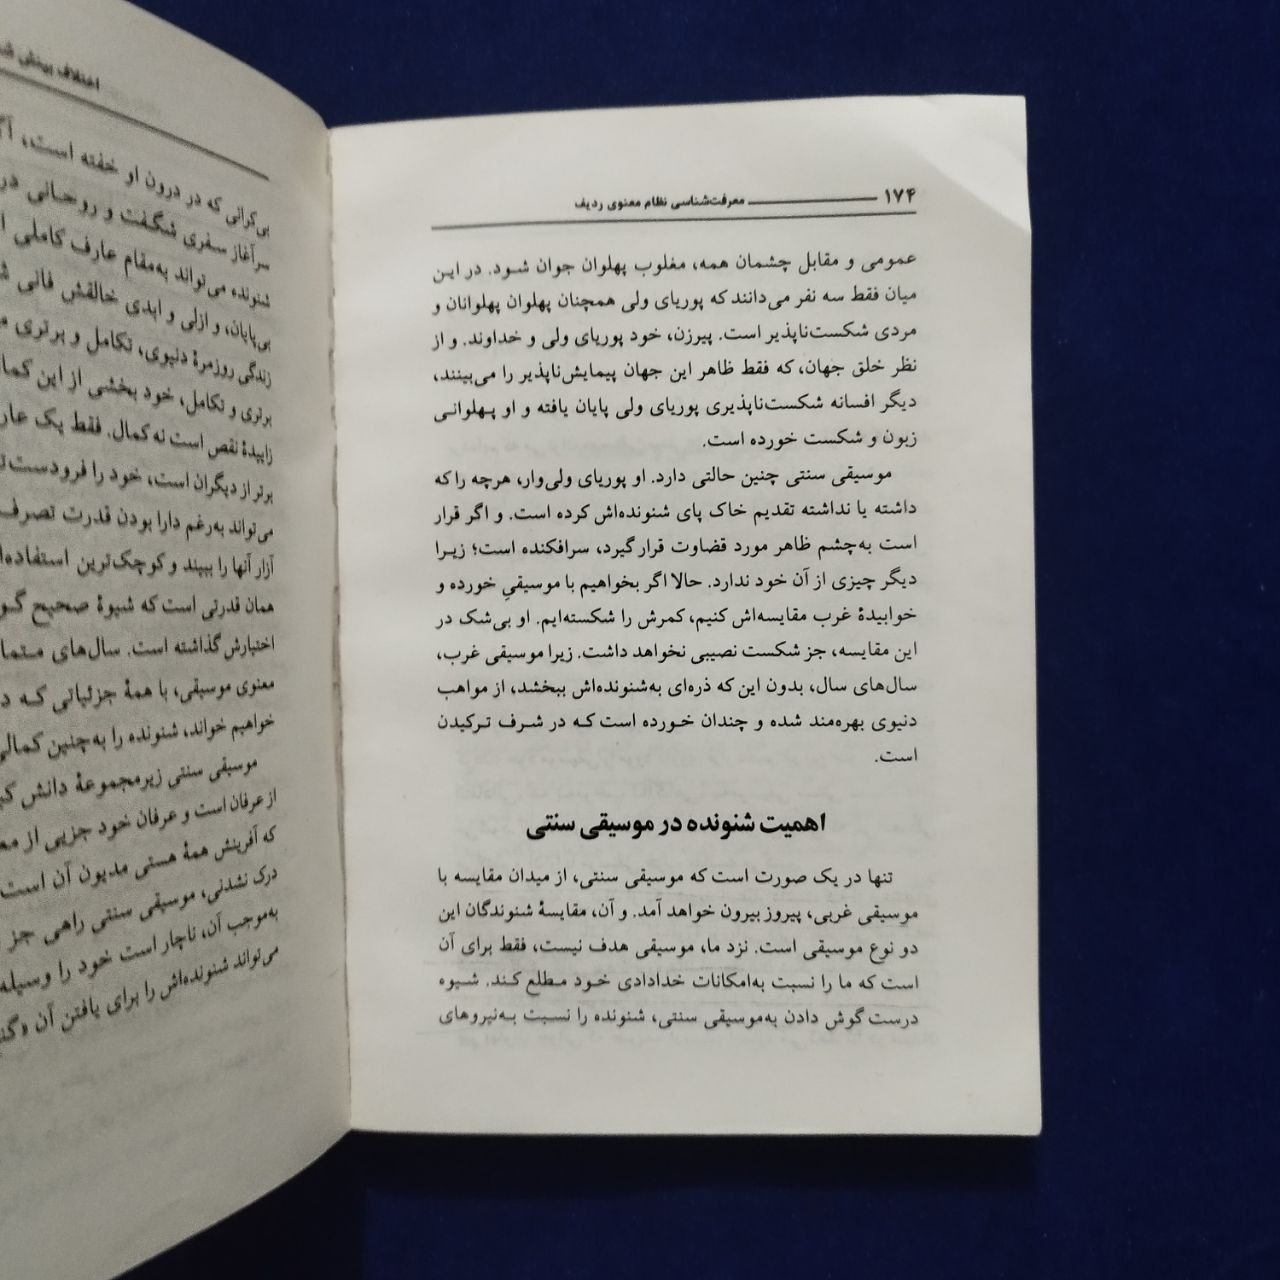 ۱۷۴ معرفت‌شناسی نظام معنوی ردیف
عمومی و مقابل چشمان همه، مغلوب پهلوان جوان شود. در این
میان فقط سه نفر می‌دانند که پوریای ولی همچنان پهلوان پهلوانان و
مردی شکست‌ناپذیر است. پیرزن، خود پوریای ولی و خداوند. و از
نظر خلق جهان، که فقط ظاهر این جهان پیمایش‌ناپذیر را می‌بینند،
دیگر افسانه شکست‌ناپذیری پوریای ولی پایان یافته و او پهلوانی
زبون و شکست خورده است.
موسیقی سنتی چنین حالتی دارد. او پوریای ولی‌وار، هرچه را که
داشته یا نداشته تقدیم خاک پای شنونده‌اش کرده است. و اگر قرار
است به‌چشم ظاهر مورد قضاوت قرار گیرد، سرافکنده است؛ زیرا
دیگر چیزی از آن خود ندارد. حالا اگر بخواهیم با موسیقیِ خورده و
خوابیدهٔ غرب مقایسه‌اش کنیم، کمرش را شکسته‌ایم. او بی‌شک در
این مقایسه، جز شکست نصیبی نخواهد داشت. زیرا موسیقی غرب،
سال‌های سال، بدون این که ذره‌ای به‌شنونده‌اش ببخشد، از مواهب
دنیوی بهره‌مند شده و چندان خورده است که در شرف ترکیدن
است.
اهمیت شنونده در موسیقی سنتی
تنها در یک صورت است که موسیقی سنتی، از میدان مقایسه با
موسیقی غربی، پیروز بیرون خواهد آمد. و آن، مقایسهٔ شنوندگان این
دو نوع موسیقی است. نزد ما، موسیقی هدف نیست، فقط برای آن
است که ما را نسبت به‌امکانات خدادادی خود مطلع کند. شیوه
درست گوش دادن به‌موسیقی سنتی، شنونده را نسبت به‌نیروهای
اختلاف بینش
بی‌کرانی که در درون او خفته است،
سرآغاز سفری شگفت و روحانی در
شنونده می‌تواند به‌مقام عارف کاملی
بی‌پایان، و ازلی و ابدی خالقش فانی
زندگی روزمرهٔ دنیوی، تکامل و برتری
برتری و تکامل، خود بخشی از این
زاییدهٔ نقص است نه کمال. فقط یک
برتر از دیگران است، خود را
می‌تواند به‌رغم دارا بودن قدرت تصرف
آزار آنها را ببیند و کوچک‌ترین
همان قدرتی است که شیوهٔ صحیح
اختیارش گذاشته است. سال‌های
معنوی موسیقی، با همهٔ جزئیاتی که
خواهیم خواند، شنونده را به‌چنین
موسیقی سنتی زیرمجموعهٔ دانش
از عرفان است و عرفان خود جزیی از
که آفرینش همهٔ هستی مدیون آن است
درک نشدنی، موسیقی سنتی راهی جز
به‌موجب آن، ناچار است خود را
می‌تواند شنونده‌اش را برای یافتن آن